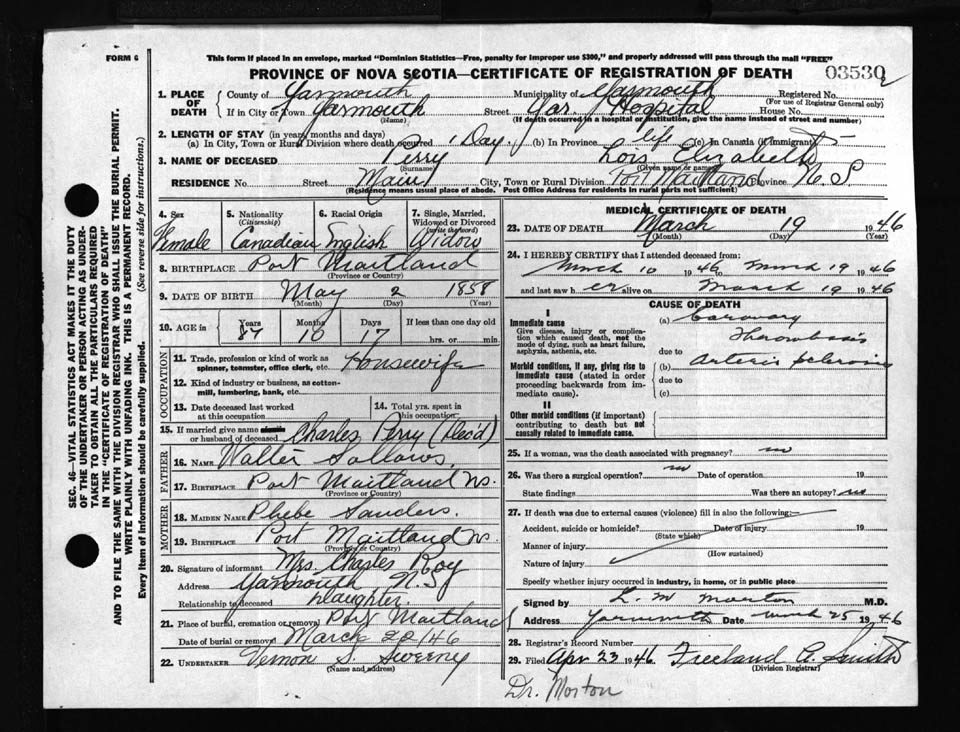 FORM 6
This form if placed in an envelope, marked "Dominion Statistics—Free, penalty for improper use $300," and properly addressed will pass through the mail "FREE"
PROVINCE OF NOVA SCOTIA—CERTIFICATE OF REGISTRATION OF DEATH
03530
1. PLACE OF DEATH
County of Yarmouth Municipality of Yarmouth Registered No.
(For use of Registrar General only)
If in City or Town Yarmouth Street Yar Hospital House No.
(Name) (If death occurred in a hospital or institution, give the name instead of street and number)
2. LENGTH OF STAY (in years, months and days)
(a) In City, Town or Rural Division where death occurred 1 Day. (b) In Province life (c) In Canada (if immigrant) —
3. NAME OF DECEASED Perry Lois Elizabeth
(Surname) (Given name or names)
RESIDENCE No. Street Main City, Town or Rural Division Port Maitland Province N. S
(Residence means usual place of abode. Post Office Address for residents in rural parts not sufficient)
4. Sex Female
5. Nationality (Citizenship) Canadian
6. Racial Origin English
7. Single, Married, Widowed or Divorced (write the word) Widow
8. BIRTHPLACE Port Maitland
(Province or Country)
9. DATE OF BIRTH May 2 1858
(Month) (Day) (Year)
10. AGE in Years 87 Months 10 Days 17 If less than one day old hrs. or min.
OCCUPATION
11. Trade, profession or kind of work as spinner, teamster, office clerk, etc. Housewife
12. Kind of industry or business, as cotton-mill, lumbering, bank, etc.
13. Date deceased last worked at this occupation
14. Total yrs. spent in this occupation
15. If married give name or husband of deceased Charles Perry (Dec'd)
FATHER
16. NAME Walter Sollows.
17. BIRTHPLACE Port Maitland NS.
(Province or Country)
MOTHER
18. MAIDEN NAME Phebe Sanders.
19. BIRTHPLACE Port Maitland NS.
(Province or Country)
20. Signature of informant Mrs. Charles Roy
Address Yarmouth N.S
Relationship to deceased Daughter.
21. Place of burial, cremation or removal Port Maitland
Date of burial or removal March 22/46
22. UNDERTAKER Vernon S. Sweeny
(Name and address)
MEDICAL CERTIFICATE OF DEATH
23. DATE OF DEATH March 19 1946
(Month) (Day) (Year)
24. I HEREBY CERTIFY that I attended deceased from:
March 10 1946 to March 19 1946
and last saw her alive on March 19 1946
CAUSE OF DEATH
I
Immediate cause
Give disease, injury or complication which caused death, not the mode of dying, such as heart failure, asphyxia, asthenia, etc.
(a) Coronary Thrombosis
due to
Morbid conditions, if any, giving rise to immediate cause (stated in order proceeding backwards from immediate cause).
(b) Arterio sclerosis
due to
(c)
II
Other morbid conditions (if important) contributing to death but not causally related to immediate cause.
25. If a woman, was the death associated with pregnancy? no
26. Was there a surgical operation? no Date of operation 19
State findings Was there an autopsy? no
27. If death was due to external causes (violence) fill in also the following:—
Accident, suicide or homicide? Date of injury 19
(State which)
Manner of injury
(How sustained)
Nature of injury
Specify whether injury occurred in industry, in home, or in public place
Signed by L. M Morton M.D.
Address Yarmouth Date March 25 1946
28. Registrar's Record Number
29. Filed Apr 23 1946 Freeland A. Smith
(Division Registrar)
Dr. Morton
SEC. 46—VITAL STATISTICS ACT MAKES IT THE DUTY
OF THE UNDERTAKER OR PERSON ACTING AS UNDER-
TAKER TO OBTAIN ALL THE PARTICULARS REQUIRED
IN THE "CERTIFICATE OF REGISTRATION OF DEATH"
AND TO FILE THE SAME WITH THE DIVISION REGISTRAR WHO SHALL ISSUE THE BURIAL PERMIT.
WRITE PLAINLY WITH UNFADING INK. THIS IS A PERMANENT RECORD.
Every item of information should be carefully supplied. (See reverse side for instructions.)